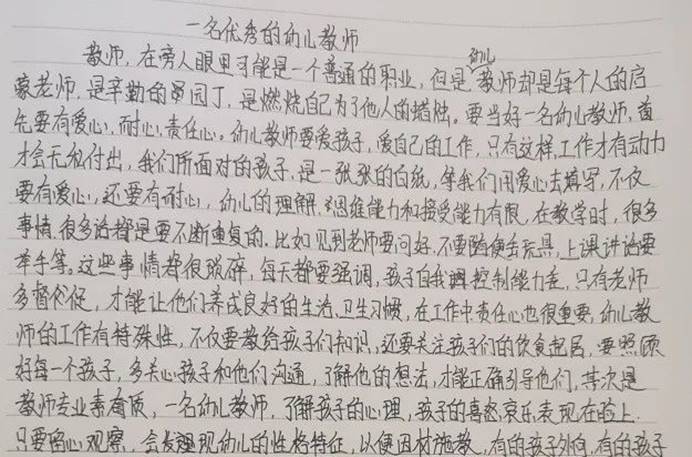 一名优秀的幼儿教师
教师，在旁人眼里可能是一个普通的职业，但是幼儿教师却是每个人的启
蒙老师，是辛勤的园丁，是燃烧自己为了他人的蜡烛。要当好一名幼儿教师，首
先要有爱心，耐心，责任心。幼儿教师要爱孩子，爱自己的工作，只有这样，工作才有动力
才会无私付出，我们所面对的孩子，是一张张的白纸，等我们用爱心去填写，不仅
要有爱心，还要有耐心，幼儿的理解，思维能力和接受能力有限，在教学时，很多
事情，很多话都是要不断重复的，比如见到老师要问好，不要随便去玩具，上课讲话要
举手等。这些事情都很琐碎，每天都要强调，孩子自我控制能力差，只有老师
多督促，才能让他们养成良好的生活、卫生习惯，在工作中责任心也很重要，幼儿教
师的工作有特殊性，不仅要教给孩子们知识，还要关注孩子们的饮食起居，要照顾
好每一个孩子，多关心孩子和他们沟通，了解他的想法，才能正确引导他们，其次是
教师专业素质，一名幼儿教师，了解孩子的心理，孩子的喜怒哀乐表现在脸上
只要留心观察，会发现幼儿的性格特征，以便因材施教，有的孩子外向，有的孩子